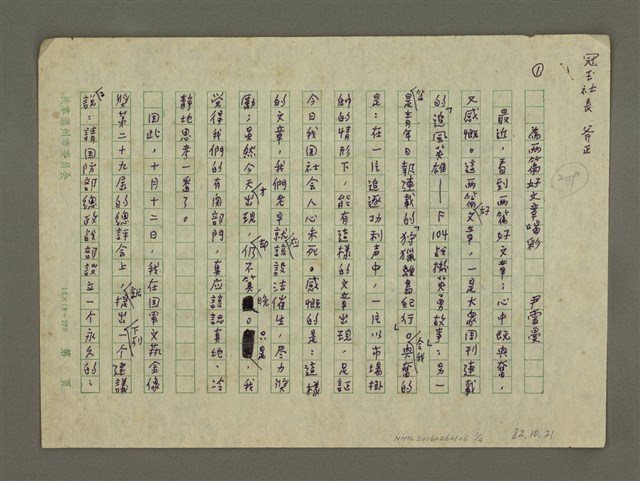 冠玉社長 斧正
①
為兩篇好文章喝彩 尹雪曼
最近,看到兩篇好文章;心中既興奮,
又感慨。這兩篇好文章,一是大眾周刊連載
的「追風英雄——F104戰機英勇故事」;另一
篇是青年日報連載的「狩獵離島紀行」。令我興奮的
是:在一片追逐功利聲中,一片以市場掛
帥的情形下,能有這樣的文章出現,足証
今日我國社會人心未死。感慨的是:這樣
的文章,我們老早就應該設法催生,盡力獎
勵;雖然今天才出現,卻仍不算晚。只是,我
覺得我們的有關部門,真應該認真地、冷
靜地思考一番了。
因此,十月十二日,我在國軍文藝金像
獎第二十九屆的總評會上,提出下列一個建議
說:請國防部總政戰部設立一個永久的、
15×18=270 第 頁
NMTL20160260106 1/4
82.10.21